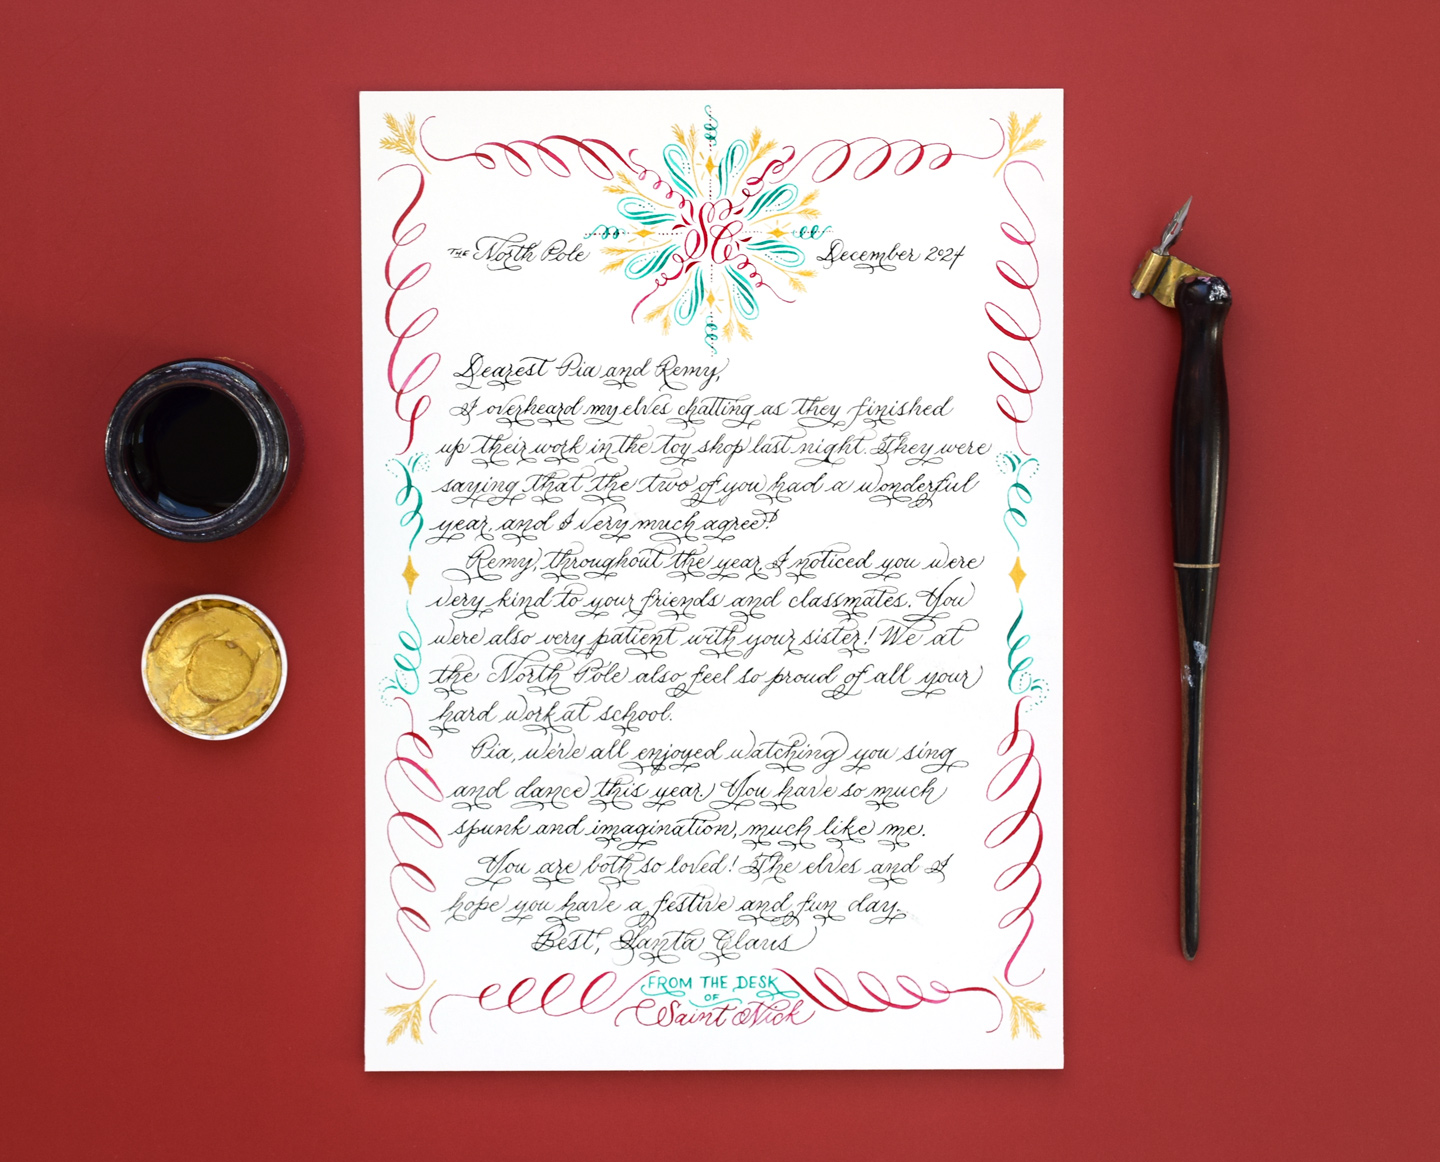 THE North Pole
SC
December 2024
Dearest Pia and Remy,
I overheard my elves chatting as they finished
up their work in the toy shop last night. They were
saying that the two of you had a wonderful
year, and I very much agree!
Remy, throughout the year, I noticed you were
very kind to your friends and classmates. You
were also very patient with your sister! We at
the North Pole also feel so proud of all your
hard work at school.
Pia, we've all enjoyed watching you sing
and dance this year. You have so much
spunk and imagination, much like me.
You are both so loved! The elves and I
hope you have a festive and fun day.
Best, Santa Claus
FROM THE DESK
OF
Saint Nick